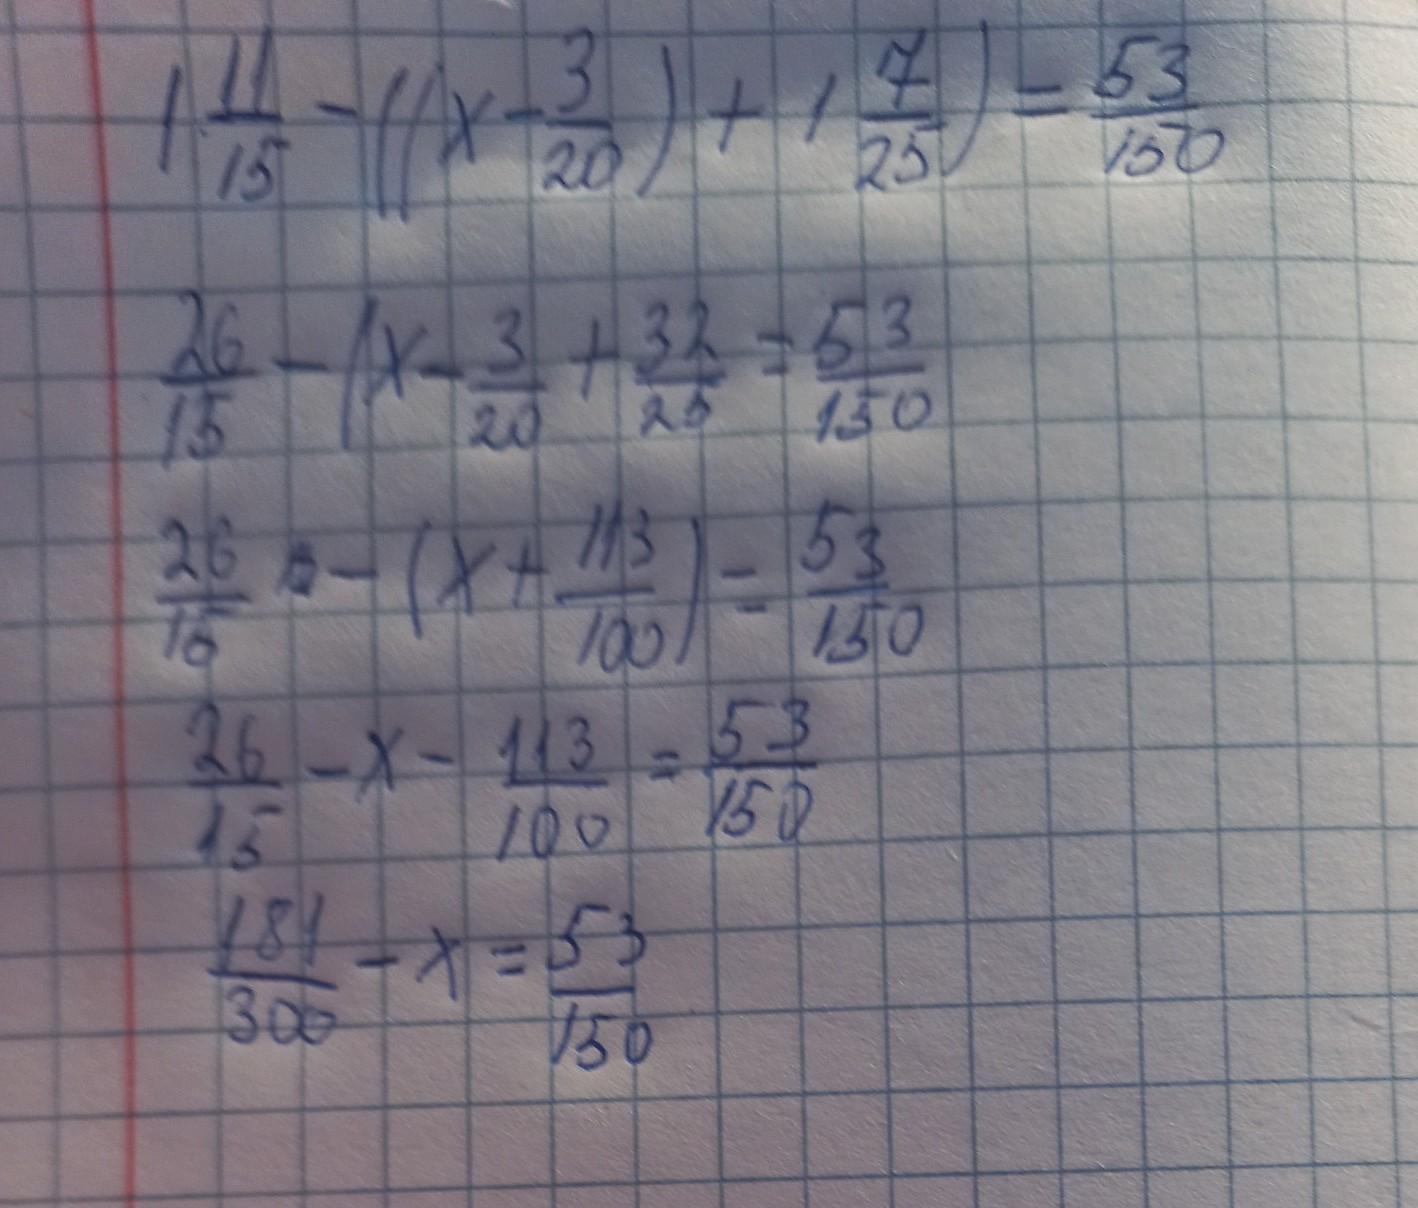 1 11/15 - ((x - 3/20) + 1 7/25) = 53/150
26/15 - (x - 3/20 + 32/25 = 53/150
26/15 - (x + 113/100) = 53/150
26/15 - x - 113/100 = 53/150
181/300 - x = 53/150